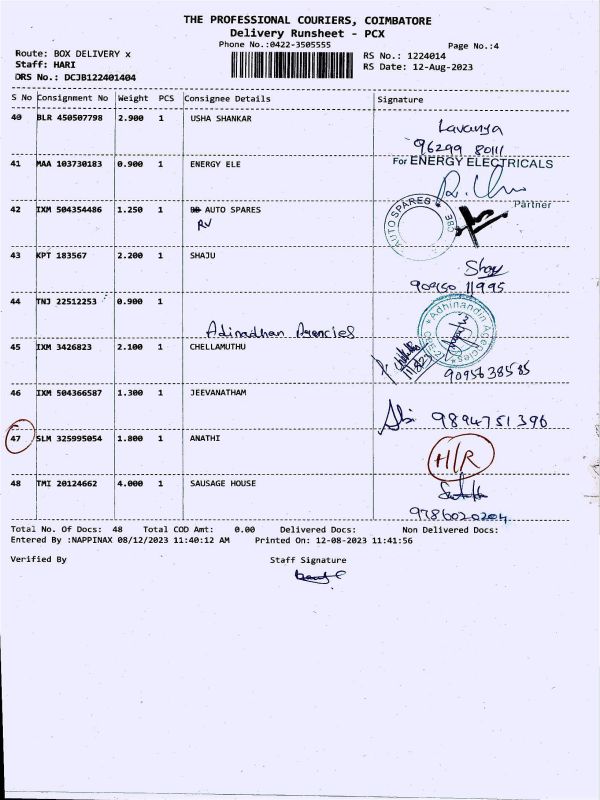 THE PROFESSIONAL COURIERS, COIMBATORE
Delivery Runsheet - PCX
Phone No.:0422-3505555 Page No.:4
Route: BOX DELIVERY x
Staff: HARI
DRS No.: DCJB122401404
RS No.: 1224014
RS Date: 12-Aug-2023
S No Consignment No Weight PCS Consignee Details Signature
40 BLR 450507798 2.900 1 USHA SHANKAR
Lavanya
96299 80111
41 MAA 103730183 0.900 1 ENERGY ELE
For ENERGY ELECTRICALS
Partner
42 IXM 504354486 1.250 1 AUTO SPARES
RV
AUTO SPARES CBE
43 KPT 183567 2.200 1 SHAJU
909150 11995
44 TNJ 22512253 0.900 1
Adinadhan Agencies
Adhinandin Agencies
45 IXM 3426823 2.100 1 CHELLAMUTHU
9095638585
46 IXM 504366587 1.300 1 JEEVANATHAM
9894751396
47 SLM 325995054 1.800 1 ANATHI
H/R
48 TMI 20124662 4.000 1 SAUSAGE HOUSE
9786020204
Total No. Of Docs: 48 Total COD Amt: 0.00 Delivered Docs: Non Delivered Docs:
Entered By :NAPPINAX 08/12/2023 11:40:12 AM Printed On: 12-08-2023 11:41:56
Verified By Staff Signature